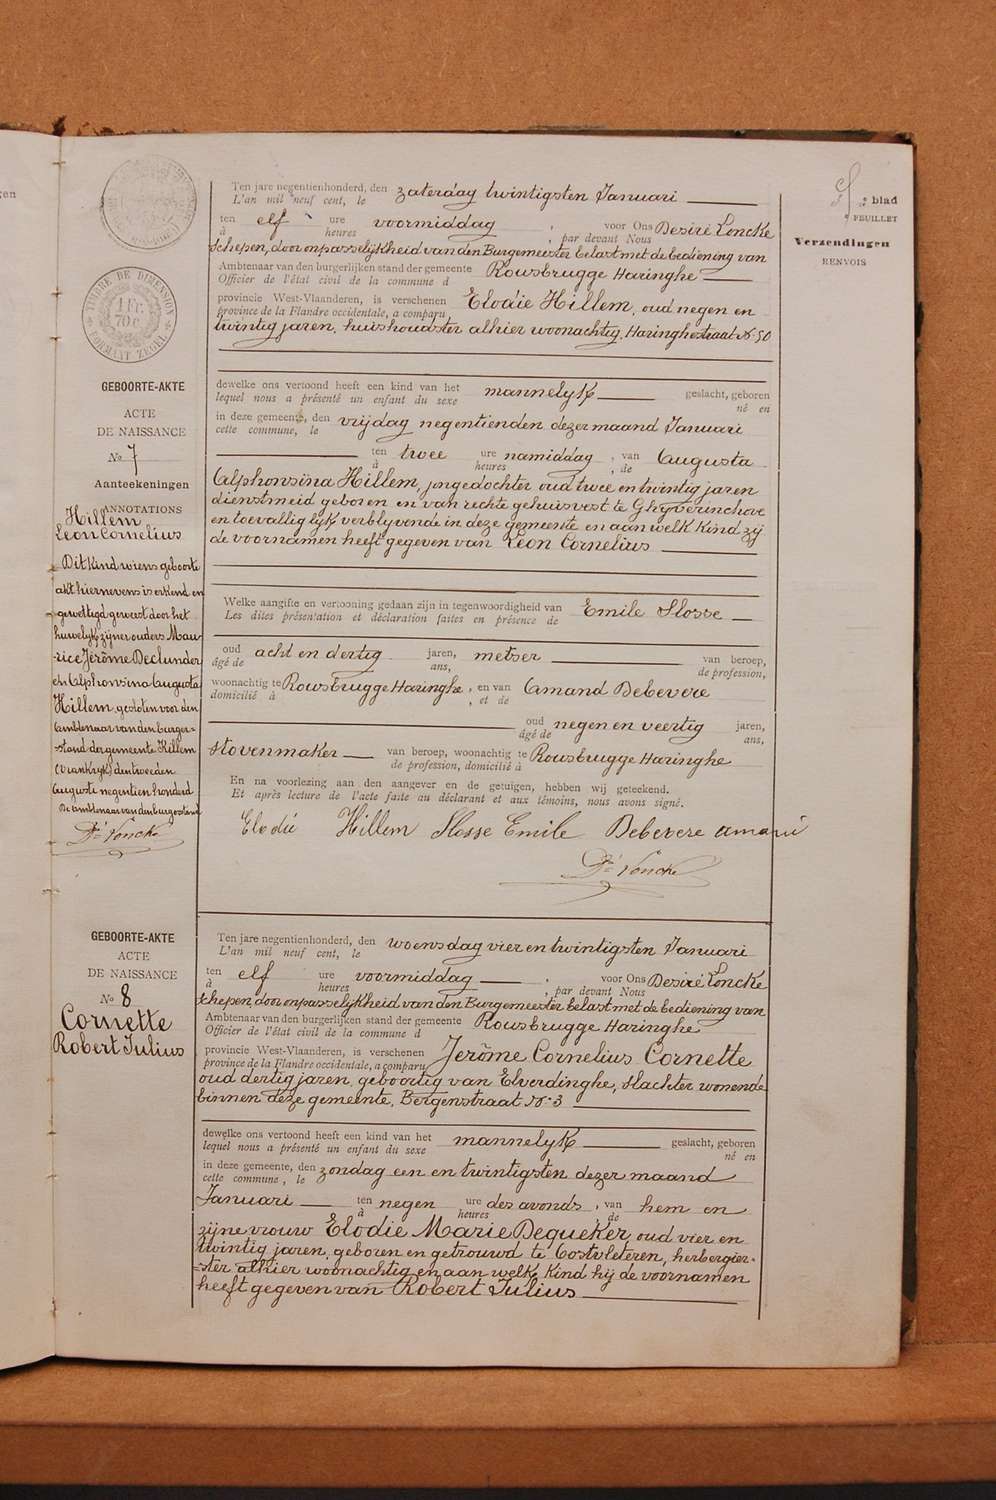 blad
FEUILLET
Verzendingen
RENVOIS
TIMBRE DE DIMENSION
1 Fr.
70 c.
FORMAAT ZEGEL
GEBOORTE-AKTE
ACTE
DE NAISSANCE
No 7
Aanteekeningen
ANNOTATIONS
Hillem
Leon Cornelius
Dit kind wiens geboorte
akt hiernevens is erkend en
gewettigd geweest door het
huwelijk zijner ouders Mau-
rice Jérôme Declunder
en Alphonsina Augusta
Hillem, gesloten voor den
Ambtenaar van den burger-
stand der gemeente Killem
(Vrankrijk) den tweeden
Auguste negentien honderd
De ambtenaar van den burgerstand
Dé Loncke
Ten jare negentienhonderd, den zaterdag twintigsten Januari
L'an mil neuf cent, le
ten elf ure voormiddag, voor Ons Desiré Loncke
à heures , par devant Nous
schepen, door onpasselijkheid van den Burgemeester belast met de bediening van
Ambtenaar van den burgerlijken stand der gemeente Rousbrugge Haringhe
Officier de l'état civil de la commune d
provincie West-Vlaanderen, is verschenen Elodie Hillem, oud negen en
province de la Flandre occidentale, a comparu
twintig jaren, huishoudster alhier woonachtig, Haringhestraat No 50
dewelke ons vertoond heeft een kind van het mannelyk geslacht, geboren
lequel nous a présenté un enfant du sexe né en
in deze gemeente, den vrijdag negentienden dezer maand Januari
cette commune, le
ten twee ure namiddag, van Augusta
à heures , de
Alphonsina Hillem, jongedochter oud twee en twintig jaren
dienstmeid geboren en van rechte gehuisvest te Ghyverinchove
en toevalliglijk verblyvende in deze gemeente en aan welk kind zij
de voornamen heeft gegeven van Leon Cornelius
Welke aangifte en vertooning gedaan zijn in tegenwoordigheid van Emile Slosse
Les dites présentation et déclaration faites en présence de
oud acht en dertig jaren, metser van beroep,
âgé de ans, de profession,
woonachtig te Rousbrugge Haringhe, en van Amand Debevere
domicilié à , et de
oud negen en veertig jaren,
âgé de ans,
stovenmaker van beroep, woonachtig te Rousbrugge Haringhe
de profession, domicilié à
En na voorlezing aan den aangever en de getuigen, hebben wij geteekend.
Et après lecture de l'acte faite au déclarant et aux témoins, nous avons signé.
Elodie Hillem Slosse Emile Debevere Amand
Dé Loncke
GEBOORTE-AKTE
ACTE
DE NAISSANCE
No 8
Cornette
Robert Julius
Ten jare negentienhonderd, den woensdag vier en twintigsten Januari
L'an mil neuf cent, le
ten elf ure voormiddag, voor Ons Desiré Loncke
à heures , par devant Nous
schepen, door onpasselijkheid van den Burgemeester belast met de bediening van
Ambtenaar van den burgerlijken stand der gemeente Rousbrugge Haringhe
Officier de l'état civil de la commune d
provincie West-Vlaanderen, is verschenen Jerôme Cornelius Cornette
province de la Flandre occidentale, a comparu
oud dertig jaren, geboortig van Elverdinghe, slachter wonende
binnen deze gemeente, Bergenstraat No 3
dewelke ons vertoond heeft een kind van het mannelyk geslacht, geboren
lequel nous a présenté un enfant du sexe né en
in deze gemeente, den zondag een en twintigsten dezer maand
cette commune, le
Januari ten negen ure des avonds, van hem en
à heures de
zijne vrouw Elodie Marie Dequeker, oud vier en
twintig jaren, geboren en getrouwd te Oostvleteren, herbergier-
ster alhier woonachtig en aan welk kind hij de voornamen
heeft gegeven van Robert Julius